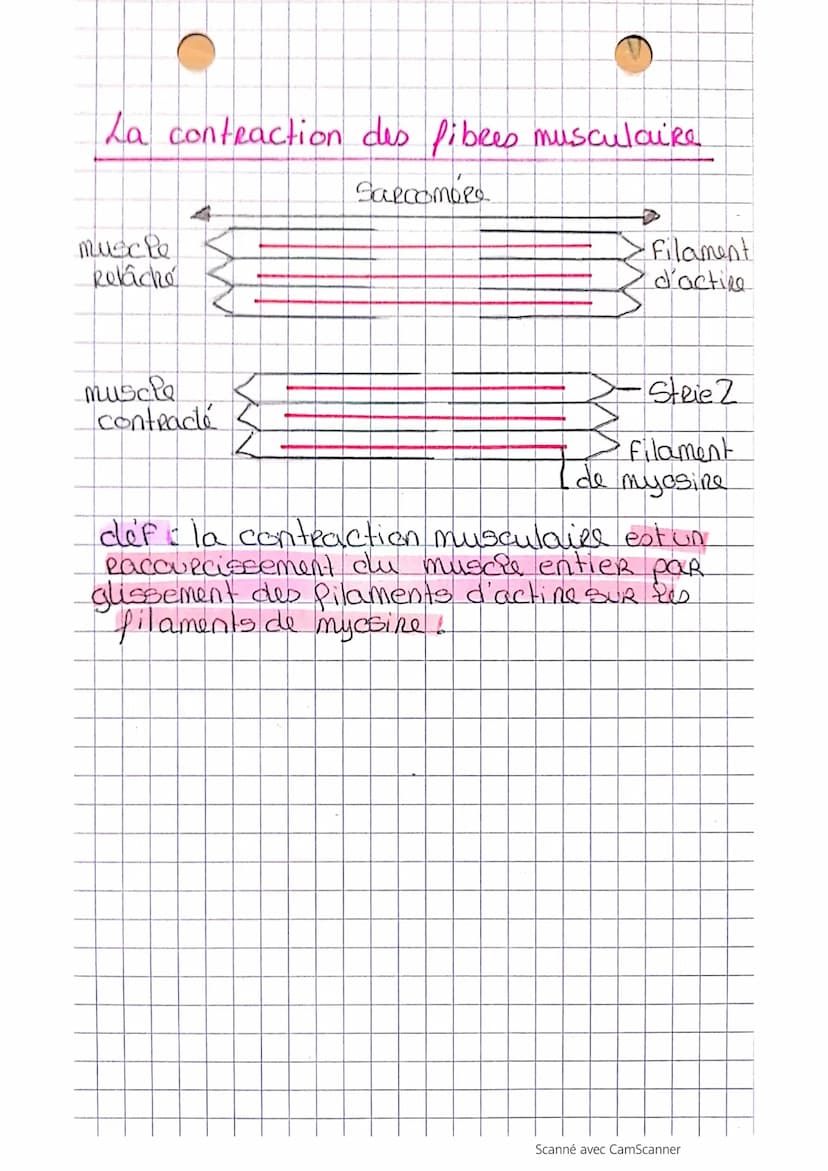 La contraction des fibres musculaire
Sarcomère
muscle
relâché
Filament
d'actine
muscle
contracté
Strie Z
Filament
de myosine
déf : la contraction musculaire est un
raccourcissement du muscle entier par
glissement des filaments d'actine sur les
filaments de myosine.
Scanné avec CamScanner